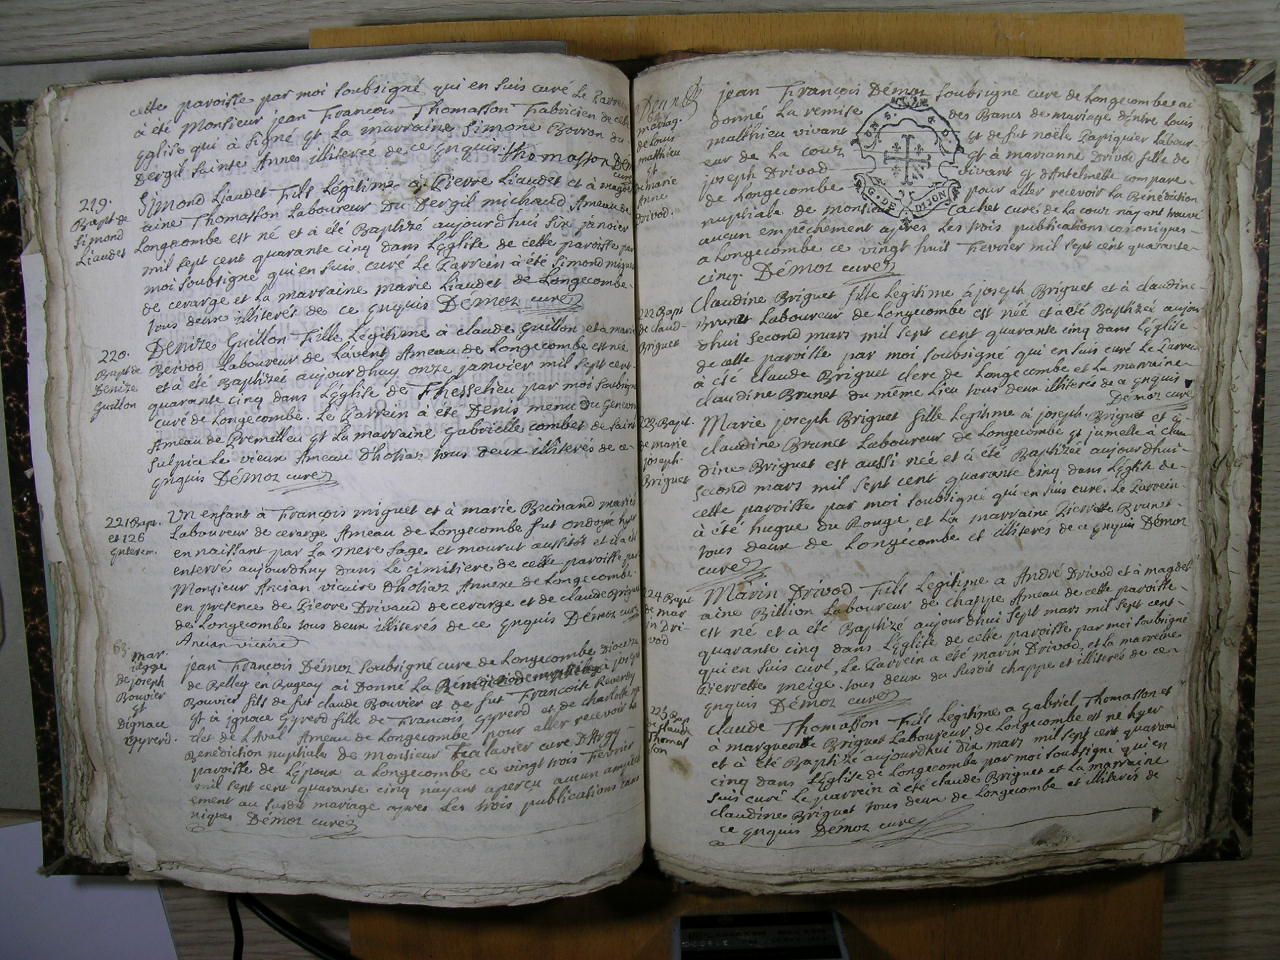 cette paroisse par moi soubsigné qui en suis curé Le Parrein
à été Monsieur jean François Thomasson Fabricien de cette
Eglise qui à signé et La marraine Simone Borron du
Dergil sainte Annes illiterée de ce enquis Thomasson Démoz
curé
219.
Bapt de
Simond
Liaudet
Simond Liaudet Fils Légitime à Pierre Liaudet et à magdel
aine Thomasson Laboureur Du Dergil michaud Ameau de
Longecombe est né et a été Baptizé aujourdhui sixe janvier
mil sept cent quarante cinq dans L'église de cette paroisse par
moi soubsigné qui en suis curé Le Parrein à été Simond miguet
de cerarge et La marraine marie Liaudet de Longecombe
tous deux illiterés de ce enquis Démoz curé
220.
Bapt de
Denize
Guillon
Denize Guillon Fille Légitime à claude Guillon et a marie
Reivod Laboureur de Lavent Ameau de Longecombe est née
et à été Baptizée aujourdhuy onze janvier mil sept cent
quarante cinq dans L'église de Thesselieu par moi soubsigné
curé de Longecombe. Le Parrein à été Denis menu Du Genevrai
Ameau de Premillieu et La marraine Gabrielle combet de saint
sulpice Le vieux Ameau d'hostiaz tous deux illiterés de ce
enquis Démoz curé
221 Bapt.
et 126
enterem.
Un enfant à François miguet et à marie Brunand mariés
Laboureur de cerarge Ameau de Longecombe fut ondoyé hyer
en naissant par La mere sage et mourut aussitôt et il a été
enterré aujourdhuy dans Le cimitiere de cette paroisse par
Monsieur Ancian vicaire d'hostiaz Annexe de Longecombe
en presence de Pierre Drivaud de cerarge et de claude Briguet
de Longecombe tous deux illiterés de ce enquis Démoz curé
Ancian vicaire
63. mar-
iage
de joseph
Bouvier
et
Dignau
Gyrerd.
jean François Démoz soubsigné curé de Longecombe Diocèze
de Belley en Bugeay ai Donné La Bénédiction nuptiale à joseph
Bouvier fils de fut claude Bouvier et de fut Françoise Reverdy
et à ignace Gyrerd fille de François Gyrerd et de charlotte
de L'aval Ameau de Longecombe pour aller recevoir La
Bénédiction nuptiale de Monsieur Tavier curé d'Argy
paroisse de L'époux a Longecombe ce vingt trois Fevrier
mil sept cent quarante cinq nayant aperçu aucun empéch
ement au susdit mariage apres Les trois publications cano
niques Démoz curé
mariag.
de Louis
matthieu
et
de marie
Anne
Drivod.
jean François Démoz soubsigné curé de Longecombe ai
donné La remise des Bancs de mariage d'entre Louis
matthieu vivant et de fut noële Papiquier Labour
eur de La cour et à marianne Drivod fille de
joseph Drivod vivant et d'Antelmette compare
de Longecombe pour aller recevoir La Bénédiction
nuptiale de monsieur cachet curé de La cour nayant trouvé
aucun empechement apres Les trois publications canoniques
a Longecombe ce vingt huit Fevrier mil sept cent quarante
cinq. Démoz curé
222 Bapt
de claud-
Briguet
Claudine Briguet fille Légitime à joseph Briguet et à claudine
Brunet Laboureur de Longecombe est née et a été Baptizée aujour
d'hui second mars mil sept cent quarante cinq dans L'église
de cette paroisse par moi soubsigné qui en suis curé Le Parrein
à été claude Briguet clerc de Longecombe et La marraine
claudine Brunet du même Lieu tous deux illiterés de ce enquis
Démoz curé
223 Bapt.
de marie
joseph
Briguet
Marie joseph Briguet fille Legitime à joseph Briguet et à
claudine Brunet Laboureur de Longecombe et jumelle à clau
dine Briguet est aussi née et à été Baptizée aujourdhui
second mars mil sept cent quarante cinq dans L'église de
cette paroisse par moi soubsigné qui en suis curé. Le Parrein
à été hugue du Rouge et La marraine Pierrette Brunet
tous deux de Longecombe et illiterés de ce enquis Démoz
curé
224 Bapt
de mar
in Dri-
vod
Marin Drivod Fils Légitime à André Drivod et à magdel
aine Billion Laboureur de chappe Ameau de cette paroisse
est né et a été Baptizé aujourdhui sept mars mil sept cent
quarante cinq dans L'église de cette paroisse par moi soubsigné
qui en suis curé. Le Parrein a été marin Drivod, et La marraine
Pierrette meige tous deux du susdit chappe et illiterés de ce
enquis Démoz curé
225 Bap
de claud
Thomas
son
Claude Thomasson Fils Légitime à Gabriel Thomasson et
à marguerite Briguet Laboureur de Longecombe est né hyer
et à été Baptizé aujourdhui Dix mars mil sept cent quarante
cinq dans L'église de Longecombe par moi soubsigné qui en
suis curé Le parrein à été claude Briguet et La marraine
claudine Briguet tous deux de Longecombe et illiterés de
ce enquis Démoz curé
G. DE DIJON